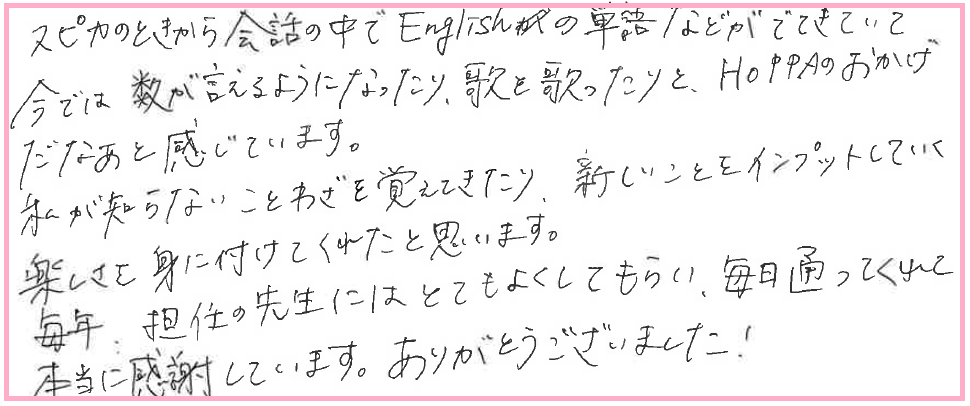 スピカのときから会話の中でEnglishの単語などがでてきていて
今では数が言えるようになったり、歌を歌ったりと、HOPPAのおかげ
だなあと感じています。
私が知らないことわざを覚えてきたり、新しいことをインプットしていく
楽しさを身に付けてくれたと思います。
毎年、担任の先生にはとてもよくしてもらい、毎日通ってくれて
本当に感謝しています。ありがとうございました!